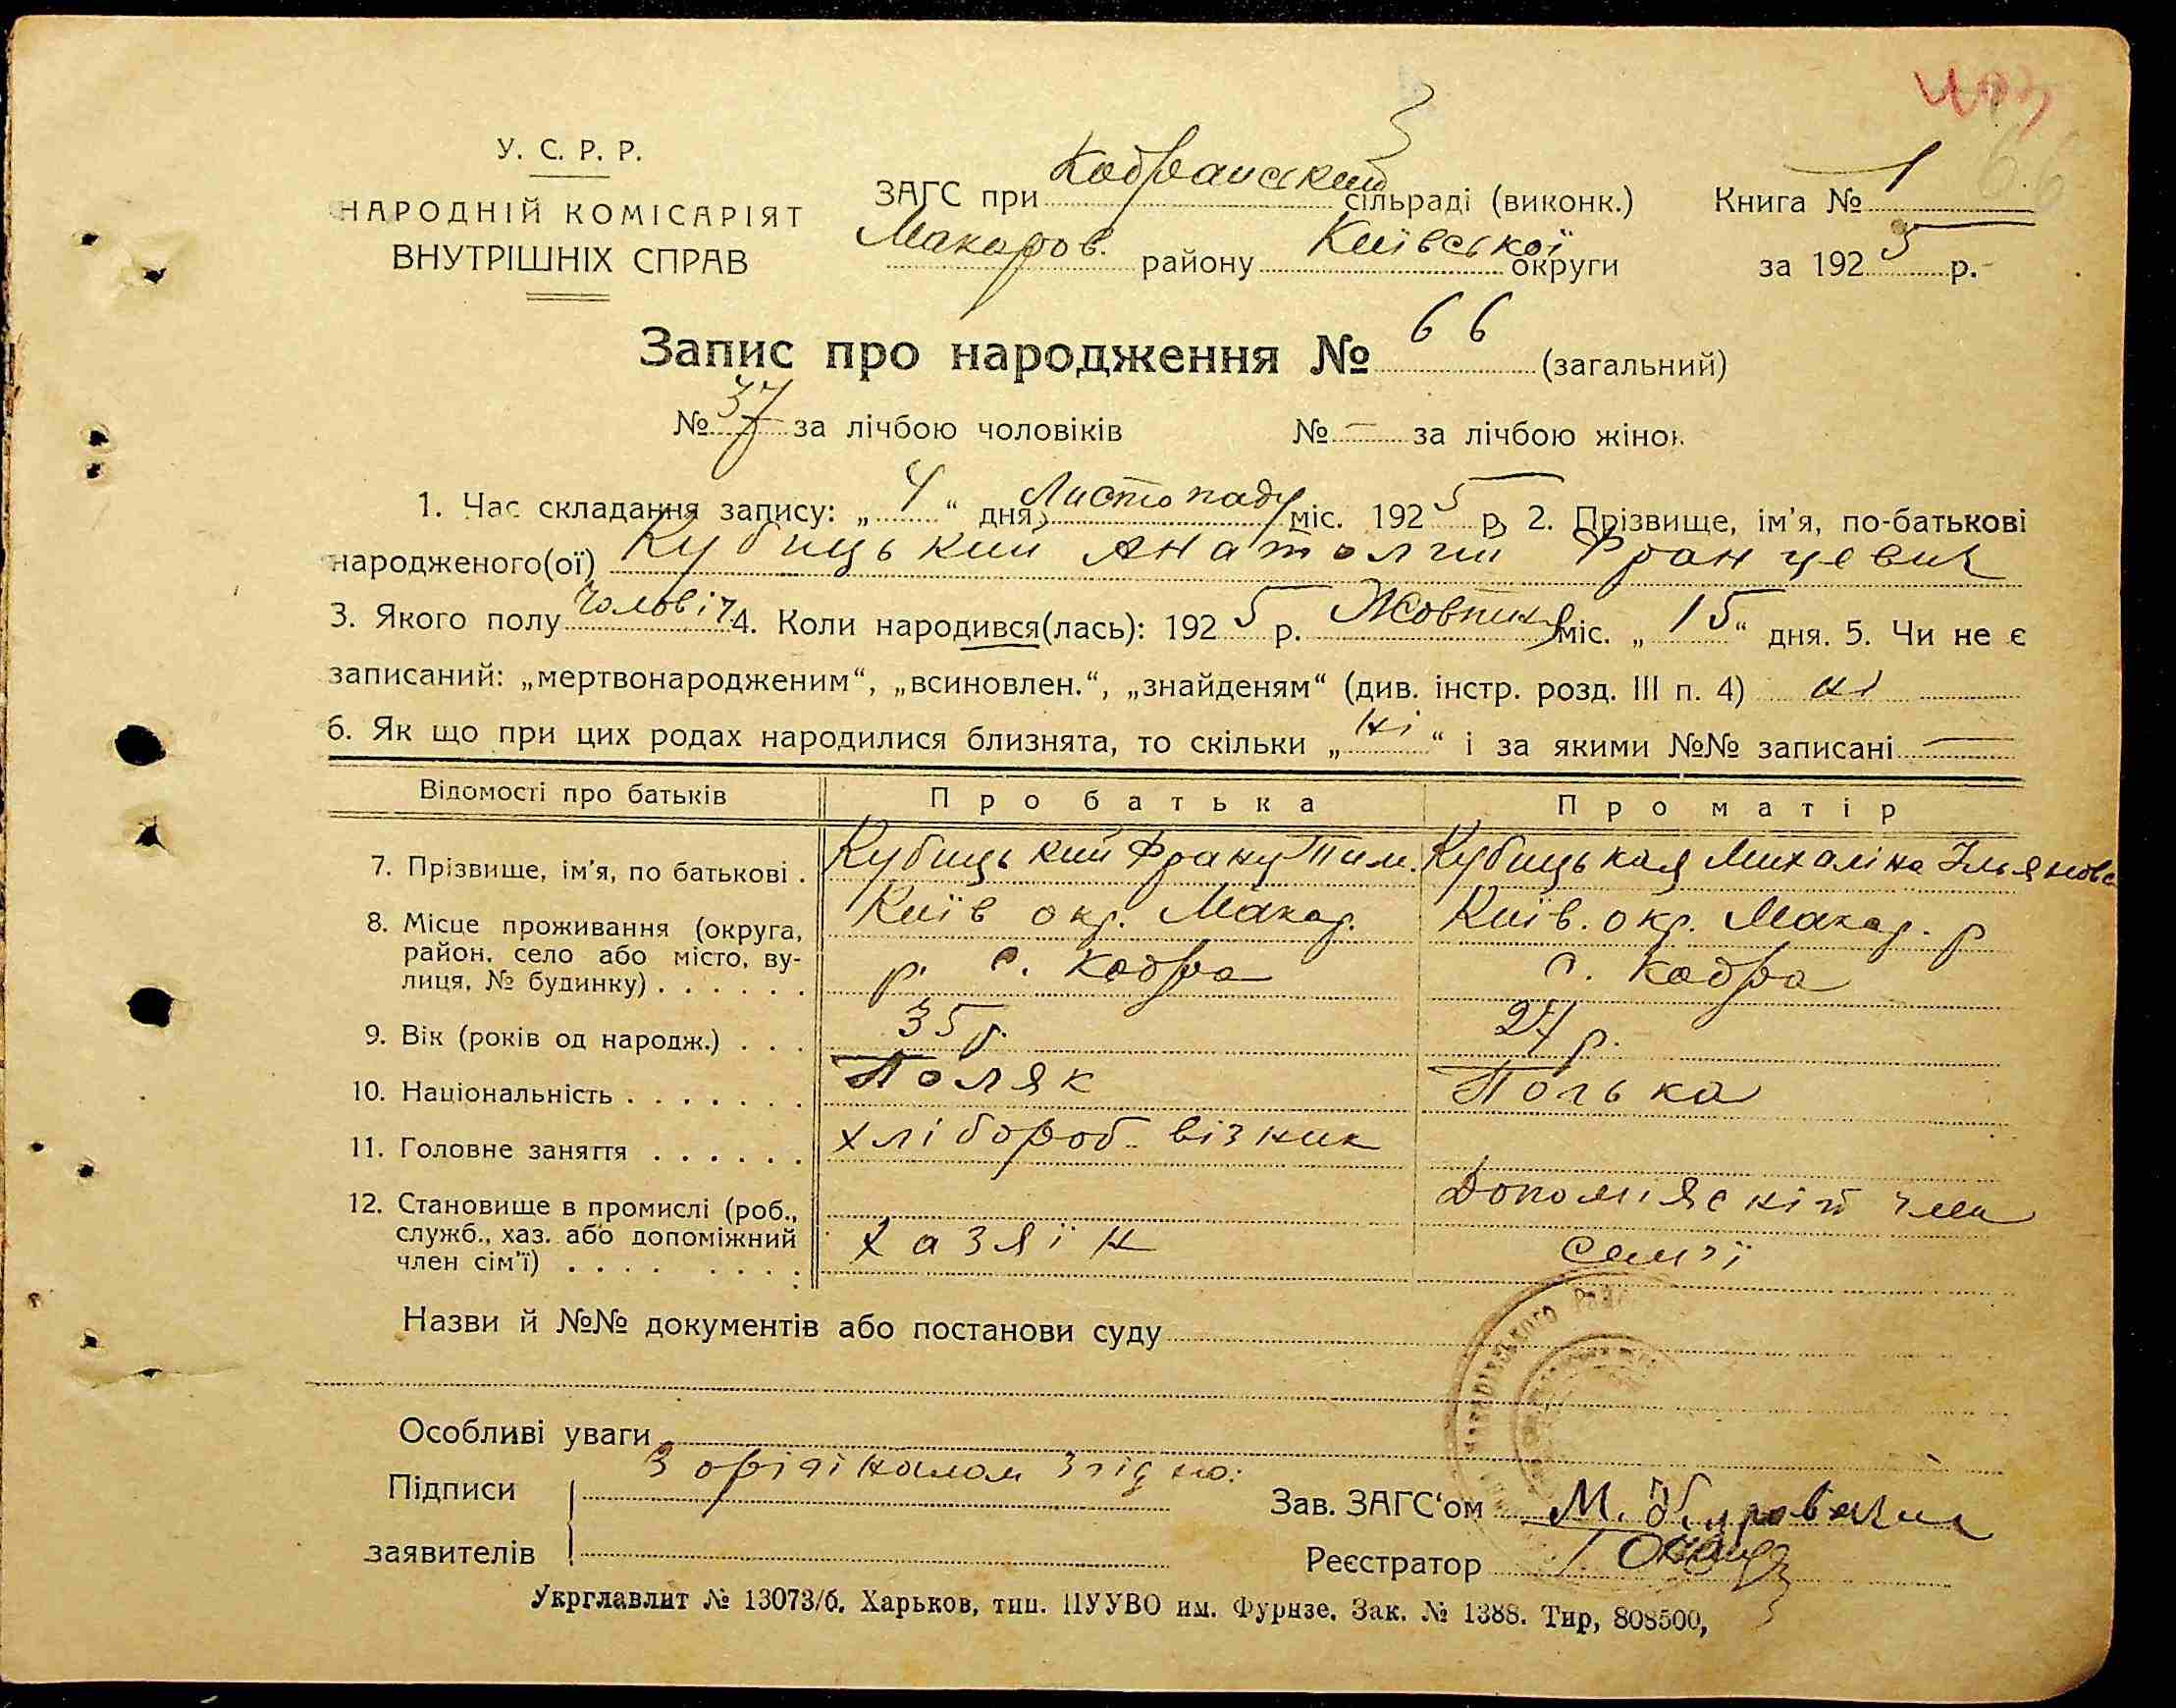 66
У. С. Р. Р.
НАРОДНІЙ КОМІСАРІЯТ
ВНУТРІШНІХ СПРАВ
ЗАГС при Кодранській сільраді (виконк.) Книга № 1
Макаров. району Київської округи за 1925 р.
Запис про народження № 66 (загальний)
№ 37 за лічбою чоловіків № — за лічбою жінок
1. Час складання запису: „4“ дня Листопаду міс. 1925 р. 2. Прізвище, ім'я, по-батькові
народженого(ої) Кубицький Анатолий Францевич
3. Якого полу чоловіч 4. Коли народився(лась): 1925 р. Жовтня міс. „15“ дня. 5. Чи не є
записаний: „мертвонародженим“, „всиновлен.“, „знайденям“ (див. інстр. розд. III п. 4) ні
6. Як що при цих родах народилися близнята, то скільки „ні“ і за якими №№ записані —
Відомості про батьків Про батька Про матір
7. Прізвище, ім'я, по батькові . Кубицький Франц Тим. Кубицькая Михаліна Ільянова
8. Місце проживання (округа, Київ окр. Макар. Київ. окр. Макар. р
район, село або місто, ву-
лиця, № будинку) . . . . . . р. с. Кодра с. Кодра
9. Вік (років од народж.) . . . 35 р. 27 р.
10. Національність . . . . . . . Поляк Полька
11. Головне заняття . . . . . . хлібороб візник
12. Становище в промислі (роб., Допоміжний член
служб., хаз. або допоміжний хазяїн семʼї
член сім'ї) . . . . . . . .
Назви й №№ документів або постанови суду
Особливі уваги
З оріґіналом згідно:
Підписи
заявителів
Зав. ЗАГС'ом М.
Реєстратор
Укрглавлит № 13073/б. Харьков, тип. ПУУВО им. Фрунзе. Зак. № 1388. Тир, 808500,